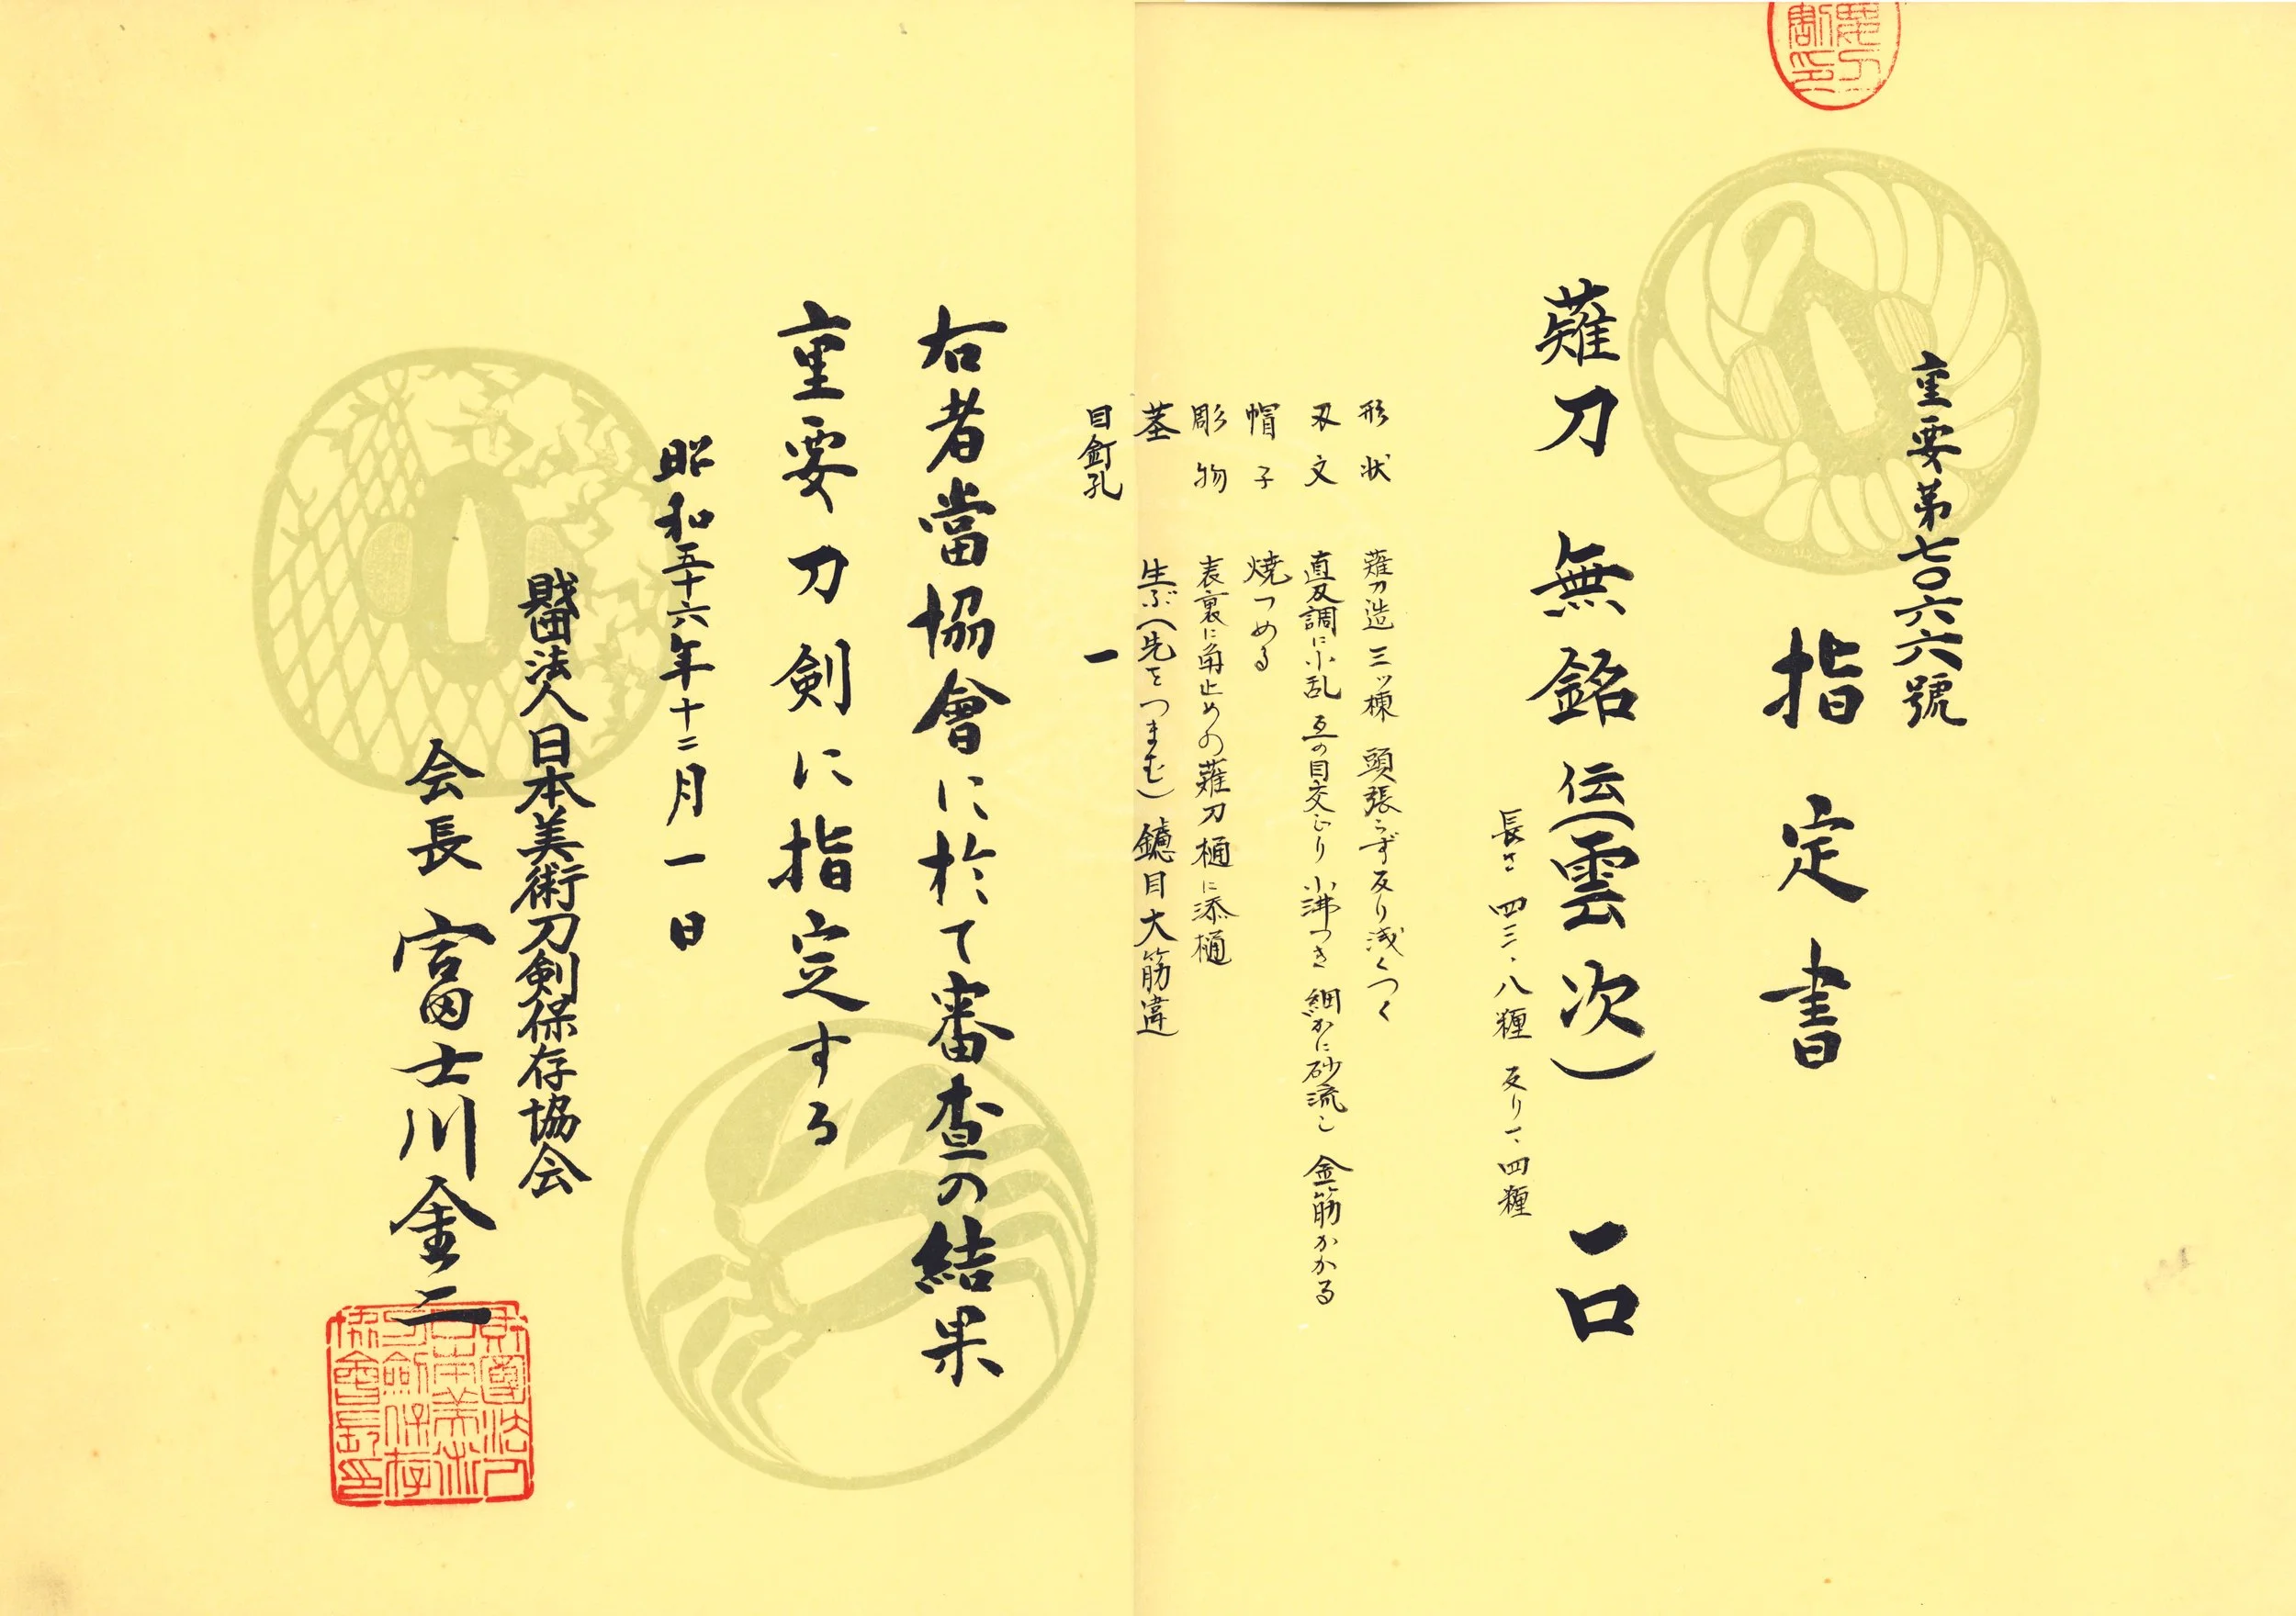 重要第七〇六六號
指定書
薙刀 無銘 伝(雲次) 一口
長さ 四三、八糎 反り 一、四糎
形状 薙刀造 三ッ棟 頭張らず 反り浅くつく
刃文 直刃調に小乱 互の目交じり 小沸つき 細かに砂流し 金筋かかる
帽子 焼つめる
彫物 表裏に角止めの薙刀樋に添樋
茎 生ぶ(先をつまむ) 鑢目大筋違
目釘孔 一
右者當協會に於て審査の結果
重要刀剣に指定する
昭和五十六年十二月一日
財団法人日本美術刀剣保存協会
会長 富士川金二
財團法人日本美術刀劍保存協會長印